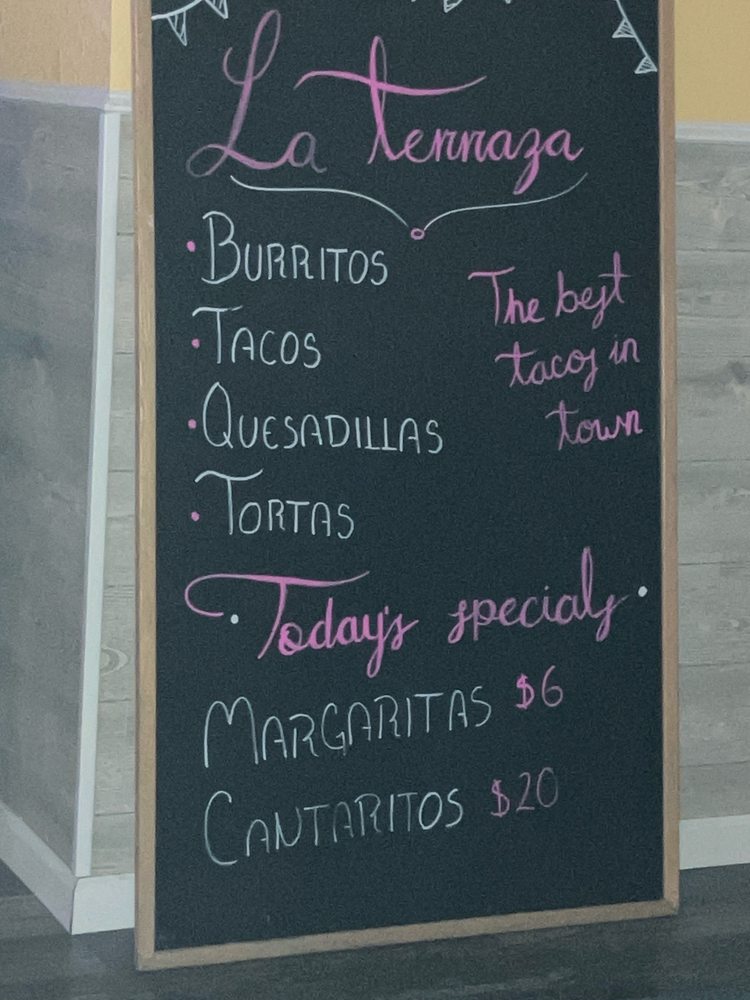 La Terraza
• BURRITOS
• TACOS
• QUESADILLAS
• TORTAS
The best
tacos in
town
• Today's specials •
MARGARITAS $6
CANTARITOS $20